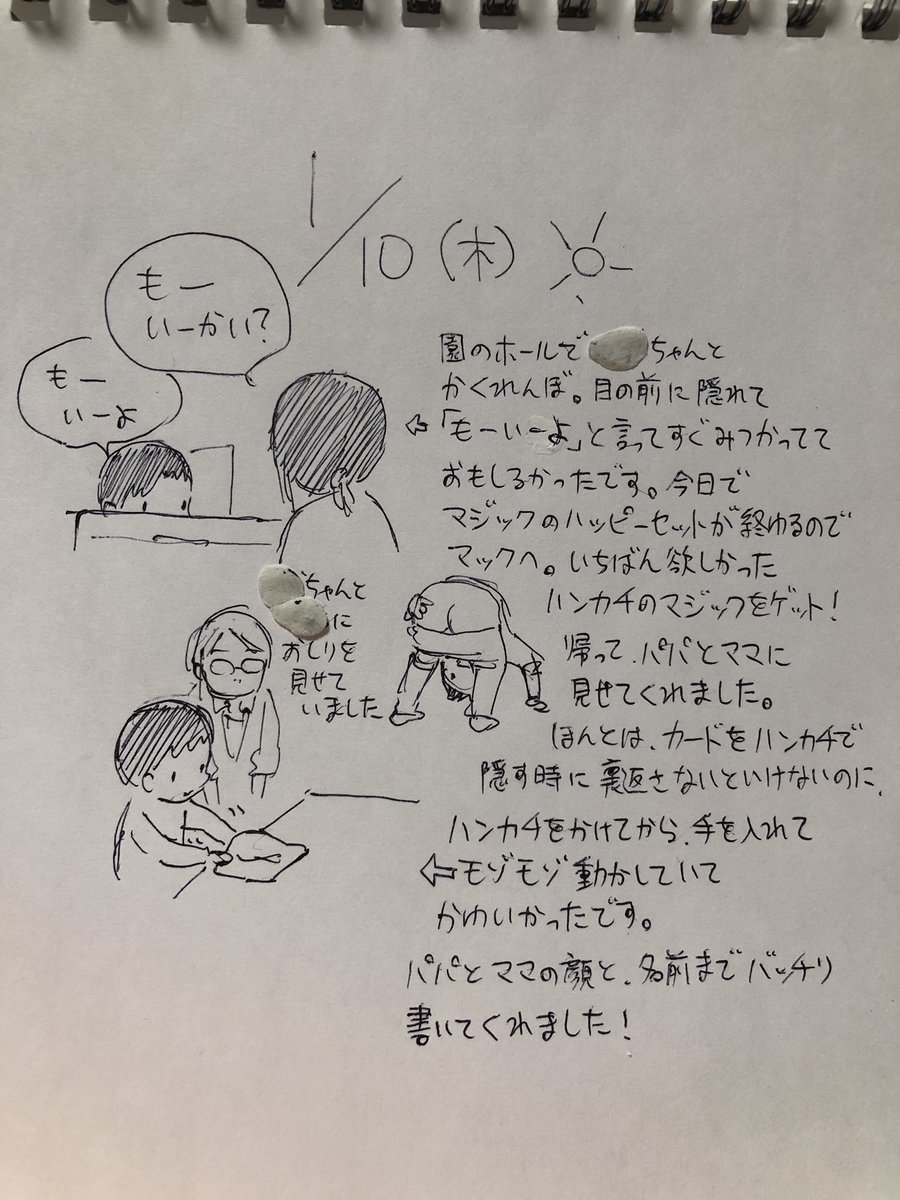 1/10(木)
もー
いーかい?
もー
いーよ
園のホールで ちゃんと
かくれんぼ。目の前に隠れて
⇦「もーいーよ」と言ってすぐみつかってて
おもしろかったです。今日で
マジックのハッピーセットが終ゆるので
マックへ。いちばん欲しかった
ハンカチのマジックをゲット!
帰って、パパとママに
見せてくれました。
ほんとは、カードをハンカチで
隠す時に裏返さないといけないのに、
ハンカチをかけてから、手を入れて
⇦モゾモゾ動かしていて
かゆいかったです。
パパとママの顔と、名前までバッチリ
書いてくれました!
ちゃんと
に
おしりを
見せて
いました